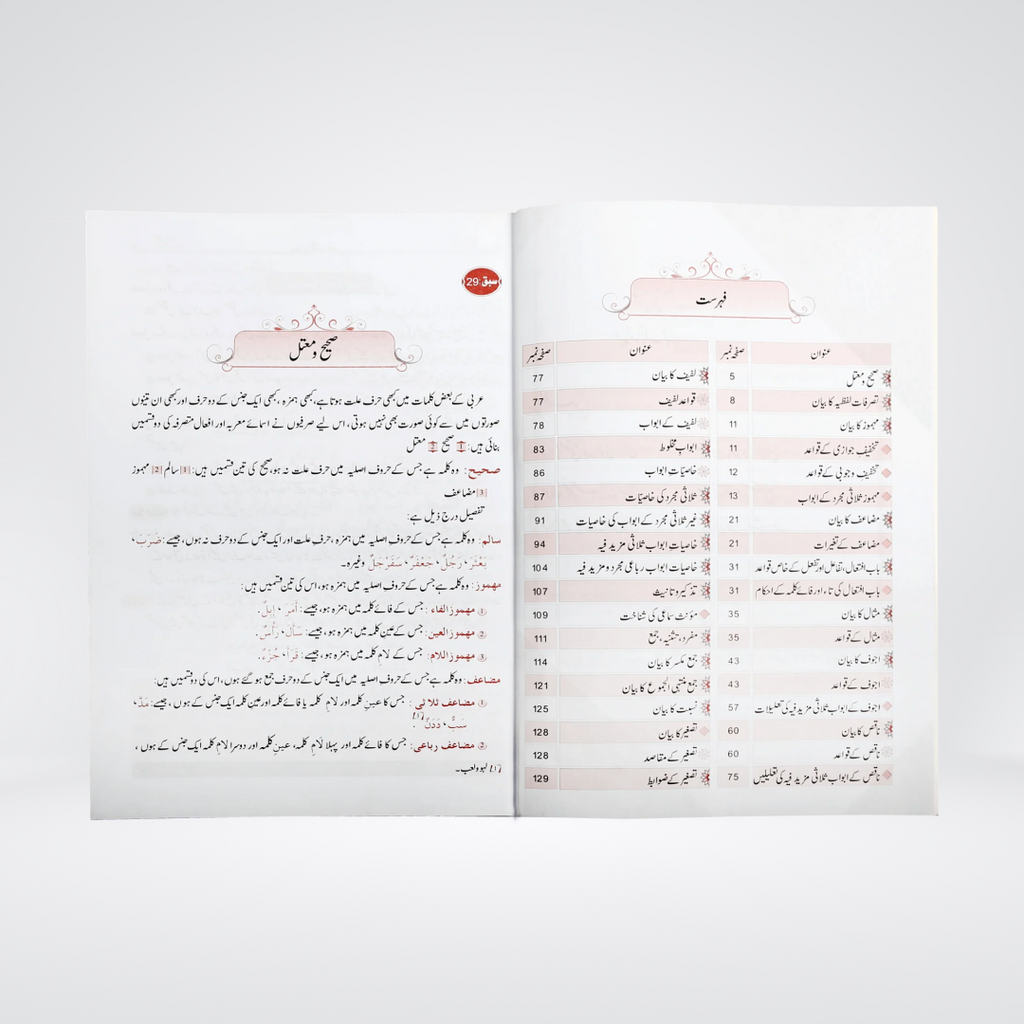 فہرست
عنوان صفحہ نمبر
صحیح و معتل 5
تصرفات لفظیہ کا بیان 8
مہموز کا بیان 11
تخفیف جوازی کے قواعد 11
تخفیف وجوبی کے قواعد 12
مہموز ثلاثی مجرد کے ابواب 13
مضاعف کا بیان 21
مضاعف کے تغیرات 21
باب افتعال، تفاعل اور تفعل کے خاص قواعد 31
باب افتعال کی تاء، اور فائے کلمہ کے احکام 31
مثال کا بیان 35
مثال کے قواعد 35
اجوف کا بیان 43
اجوف کے قواعد 43
اجوف کے ابواب ثلاثی مزید فیہ کی تعلیلات 57
ناقص کا بیان 60
ناقص کے قواعد 60
ناقص کے ابواب ثلاثی مزید فیہ کی تعلیلیں 75
عنوان صفحہ نمبر
لفیف کا بیان 77
قواعد لفیف 77
لفیف کے ابواب 78
ابواب مخلوط 83
خاصیّات ابواب 86
ثلاثی مجرد کی خاصیّات 87
غیر ثلاثی مجرد کے ابواب کی خاصیات 91
خاصیات ابواب ثلاثی مزید فیہ 94
خاصیات ابواب رباعی مجرد و مزید فیہ 104
تذکیر و تانیث 107
مؤنث سماعی کی شناخت 109
مفرد، تثنیہ، جمع 111
جمع مکسر کا بیان 114
جمع منتہی الجموع کا بیان 121
نسبت کا بیان 125
تصغیر کا بیان 128
تصغیر کے مقاصد 128
تصغیر کے ضوابط 129
سبق:29
صحیح و معتل
عربی کے بعض کلمات میں کبھی حرف علت ہوتا ہے، کبھی ہمزہ، کبھی ایک جنس کے دو حرف اور کبھی ان تینوں
صورتوں میں سے کوئی صورت بھی نہیں ہوتی، اس لیے صرفیوں نے اسمائے معربہ اور افعال متصرفہ کی دو قسمیں
بنائی ہیں: 1 صحیح 2 معتل
صحیح: وہ کلمہ ہے جس کے حروف اصلیہ میں حرف علت نہ ہو، صحیح کی تین قسمیں ہیں: 1 سالم 2 مہموز
3 مضاعف
تفصیل درج ذیل ہے:
سالم: وہ کلمہ ہے جس کے حروف اصلیہ میں ہمزہ، حرف علت اور ایک جنس کے دو حرف نہ ہوں، جیسے: ضَرَبَ،
بَعْثَرَ، رَجُلٌ، جَعْفَرٌ، سَفَرْجَلٌ وغیرہ۔
مہموز: وہ کلمہ ہے جس کے حروف اصلیہ میں ہمزہ ہو، اس کی تین قسمیں ہیں:
① مہموز الفاء: جس کے فائے کلمہ میں ہمزہ ہو، جیسے: أَمَرَ، إِبِلٌ.
② مہموز العین: جس کے عین کلمہ میں ہمزہ ہو، جیسے: سَأَلَ، رَأْسٌ.
③ مہموز اللام: جس کے لام کلمہ میں ہمزہ ہو، جیسے: قَرَأَ، جُزْءٌ.
مضاعف: وہ کلمہ ہے جس کے حروف اصلیہ میں ایک جنس کے دو حرف جمع ہو گئے ہوں، اس کی دو قسمیں ہیں:
① مضاعف ثلاثی: جس کا عین کلمہ اور لام کلمہ یا فائے کلمہ اور عین کلمہ ایک جنس کے ہوں، جیسے: مَدَّ،
سَبٌّ، دَدَنٌ [1].
② مضاعف رباعی: جس کا فائے کلمہ اور پہلا لام کلمہ، عین کلمہ اور دوسرا لام کلمہ ایک جنس کے ہوں،
[1] لہو و لعب۔